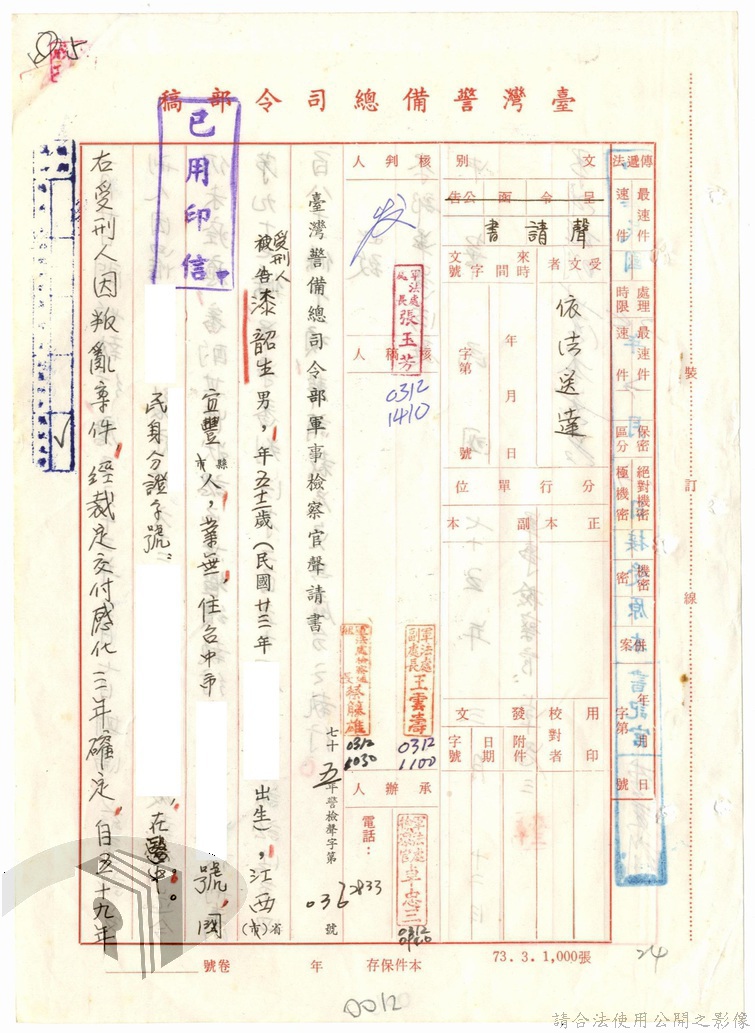 臺灣警備總司令部稿
已用印信
傳遞法
最速件
速件
處理時限
最速件
速件
保密區分
絕對機密
極機密
機密
密
併案
年月日
字第
號
文別
呈令函公告
聲請書
受文者
依法送達
來文
時間
字號
年月日
字第
號
分行單位
正本
副本
用印
校對者
發文
附件
日期
字號
核判人
發
軍法處處長張玉芳
核稿人
0312
1410
軍法處副處長王雲濤
0312
1100
蔡藤雄
0312
1030
承辦人
卓忠三
0312
電話:
2833
臺灣警備總司令部軍事檢察官聲請書
七十五年警檢聲字第036號
受刑人
被告漆韶生男,年五十二歲(民國廿三年
出生),江西省(市)
宜豐縣市人,業無,住台中市
號,國
民身分證字號:
,在醫中。
右受刑人因叛亂案件,經裁定交付感化三年確定,自五十九年
裝訂線
書記官
本件保存
年
卷號
73. 3. 1,000張
24
0012
請合法使用公開之影像